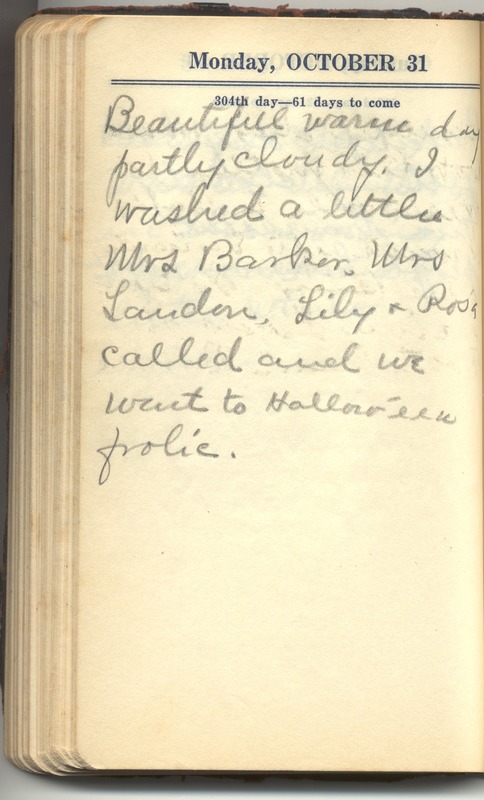 Monday, OCTOBER 31
304th day—61 days to come
Beautiful warm day
partly cloudy. I
washed a little
Mrs Barker, Mrs
Landon, Lily & Rosa
called and we
went to Hallow'een
frolic.